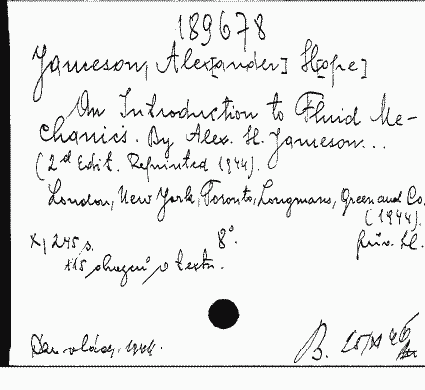 189678
Jameson, Alex[ander] H[ope]
An Introduction to Fluid Me-
chanics. By Alex. H. Jameson...
(2d Edit. Reprinted 1944).
London, New York, Toronto, Longmans, Green and Co.
(1944).
X, 245 s. 8°.
115 o textu.
B.